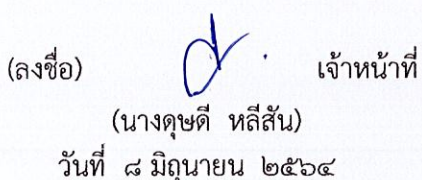 (ลงชื่อ) เจ้าหน้าที่
(นางดุษดี หลีสัน)
วันที่ ๘ มิถุนายน ๒๕๖๔